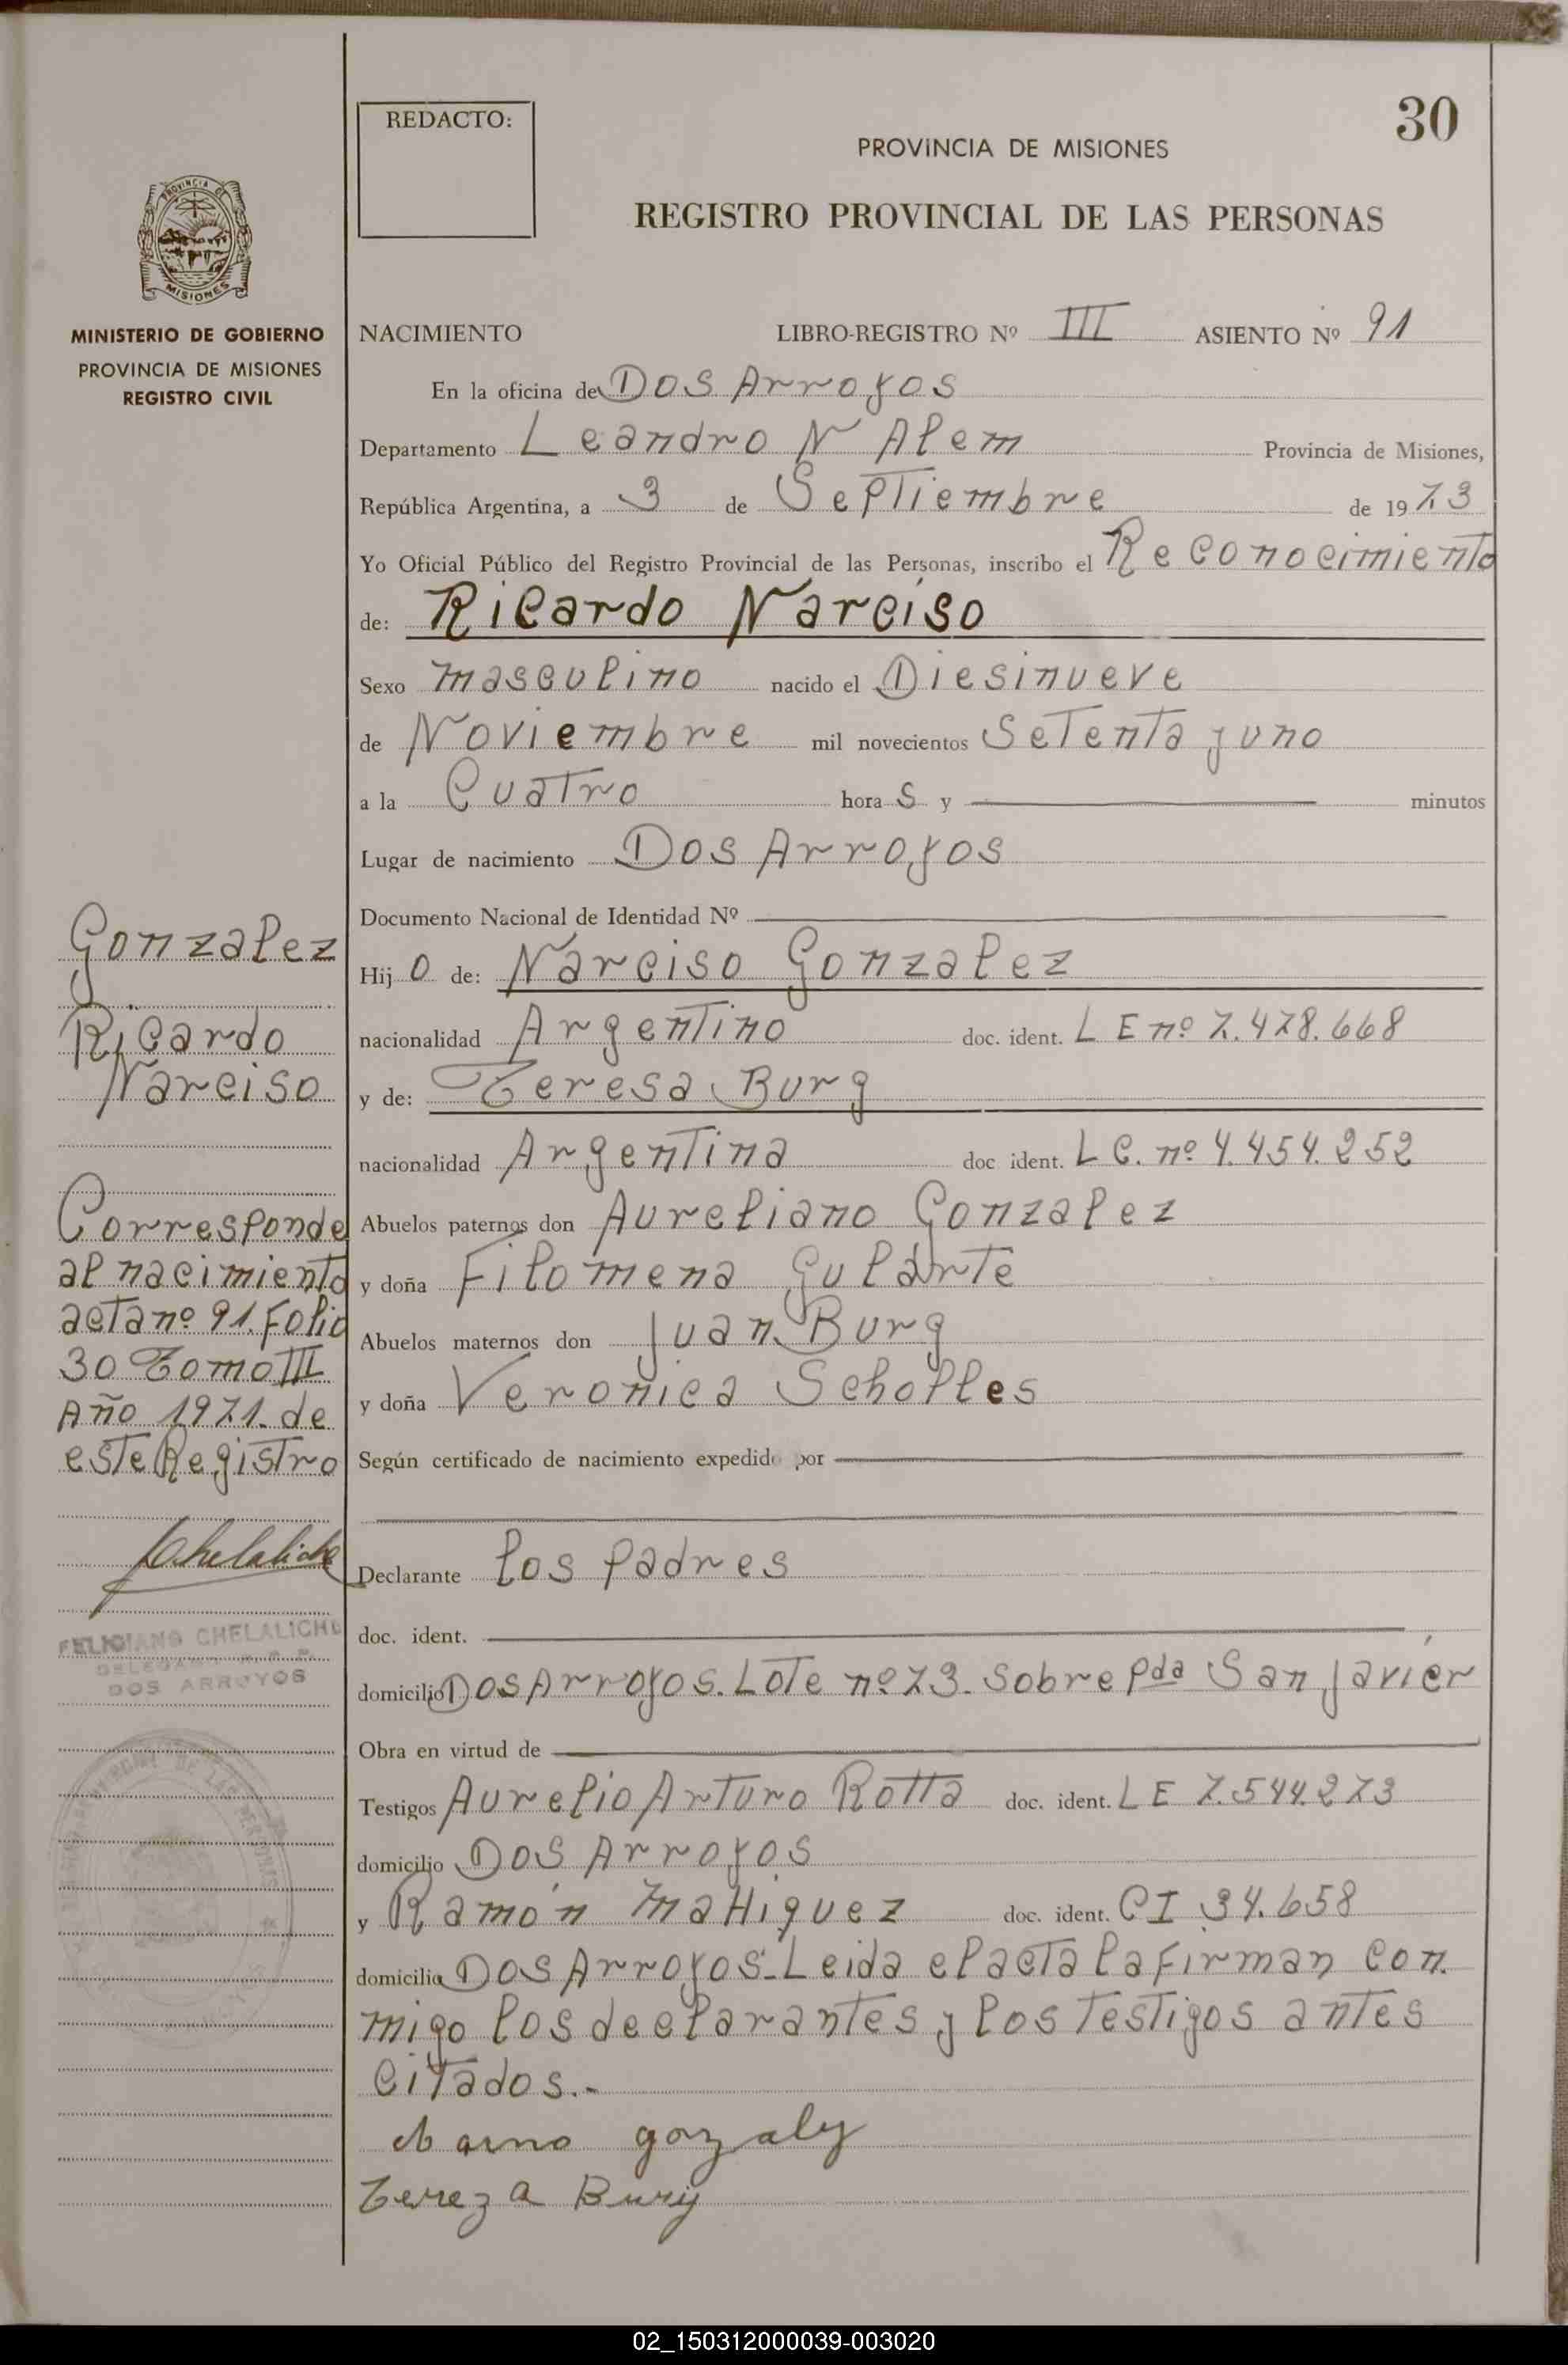 30
REDACTO:
PROVINCIA DE MISIONES
REGISTRO PROVINCIAL DE LAS PERSONAS
PROVINCIA DE
MISIONES
MINISTERIO DE GOBIERNO
PROVINCIA DE MISIONES
REGISTRO CIVIL
NACIMIENTO LIBRO-REGISTRO Nº III ASIENTO Nº 91
En la oficina de Dos Arroyos
Departamento Leandro N Alem Provincia de Misiones,
República Argentina, a 3 de Septiembre de 1973
Yo Oficial Público del Registro Provincial de las Personas, inscribo el Reconocimiento
de: Ricardo Narciso
Sexo masculino nacido el Diesinueve
de Noviembre mil novecientos setenta y uno
a la Cuatro hora s y minutos
Lugar de nacimiento Dos Arroyos
Documento Nacional de Identidad Nº
Hij o de: Narciso Gonzalez
nacionalidad Argentino doc. ident. L E nº 7.478.668
y de: Teresa Burg
nacionalidad Argentina doc ident. L C. nº 4.454.252
Abuelos paternos don Aureliano Gonzalez
y doña Filomena Gularte
Abuelos maternos don Juan Burg
y doña Veronica Scholles
Según certificado de nacimiento expedido por
Declarante los padres
doc. ident.
domicilio Dos Arroyos. Lote nº 73. sobre pda San Javier
Obra en virtud de
Testigos Aurelio Arturo Rotta doc. ident. L E 7.544.273
domicilio Dos Arroyos
y Ramón Mattiguez doc. ident. CI 34.658
domicilio Dos Arroyos.-Leida el acta la firman con.
migo los declarantes y los testigos antes
citados.-
gozaly
Tereza Burg
Gonzalez
Ricardo
Narciso
Corresponde
al nacimiento
acta nº 91. Folio
30 Tomo III
Año 1971. de
este Registro
Chelaliche
FELICIANO CHELALICHE
DELEGADO
DOS ARROYOS
02_150312000039-003020